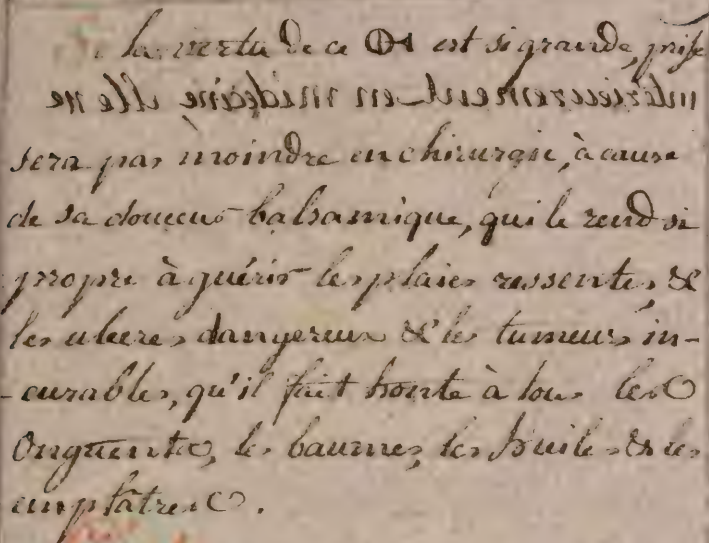 la vertu de ce est si grande, prise
intérieurement en médecine elle ne
sera pas moindre en chirurgie, à cause
de sa douceur balsamique, qui le rend si
propre à guérir les plaies ressentes, &
les ulceres dangereux & les tumeurs in-
-curables, qu'il fait honte à tous les
Onguents, les baumes, les huiles & les
emplâtres.